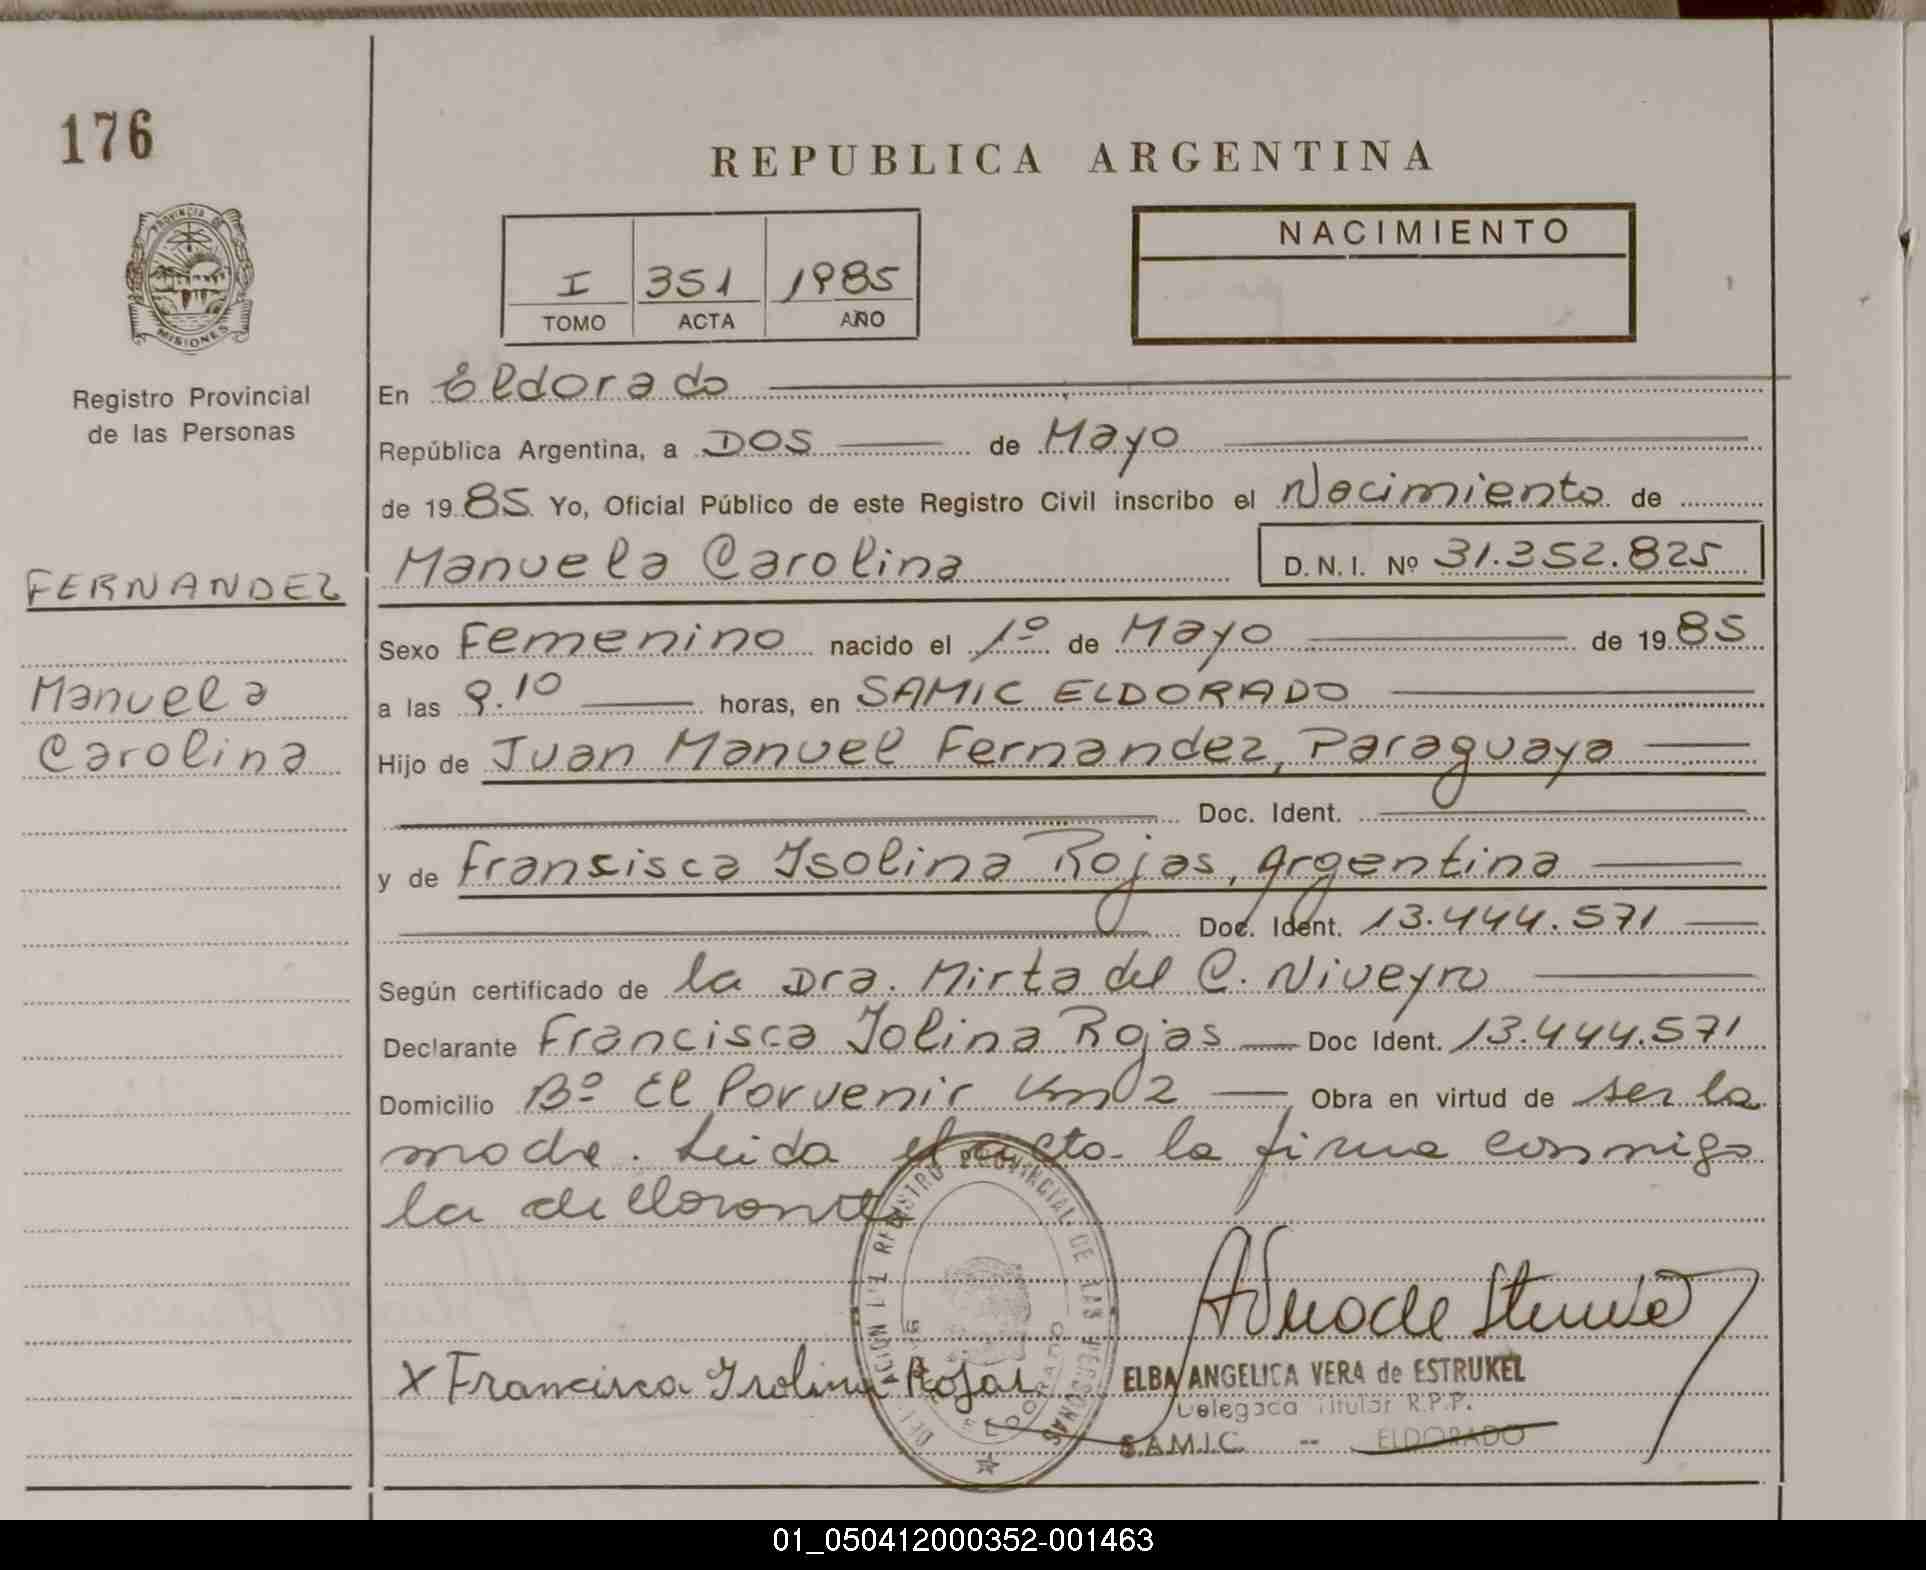 176
REPUBLICA ARGENTINA
PROVINCIA DE
MISIONES
Registro Provincial
de las Personas
I 351 1985
TOMO ACTA AÑO
NACIMIENTO
En Eldorado
República Argentina, a DOS de Mayo
de 1985 Yo, Oficial Público de este Registro Civil inscribo el Nacimiento de
Manuela Carolina D.N.I. Nº 31.352.825
FERNANDEZ
Manuela
Carolina
Sexo Femenino nacido el 1º de Mayo de 1985
a las 9.10 horas, en SAMIC ELDORADO
Hijo de Juan Manuel Fernandez, Paraguaya
Doc. Ident.
y de Fransisca Isolina Rojas, Argentina
Doc. Ident. 13.444.571
Según certificado de la Dra. Mirta del C. Niveyro
Declarante Francisca Isolina Rojas Doc Ident. 13.444.571
Domicilio Bº El Porvenir Km 2 Obra en virtud de ser la
madre. Leida el acta la firma conmigo
la declarante
REGISTRO PROVINCIAL DE LAS PERSONAS
ELDORADO
X Francisca Isolina Rojas
ELBA ANGELICA VERA de ESTRUKEL
Delegada Titular R.P.P.
S.A.M.I.C. -- ELDORADO
01_050412000352-001463